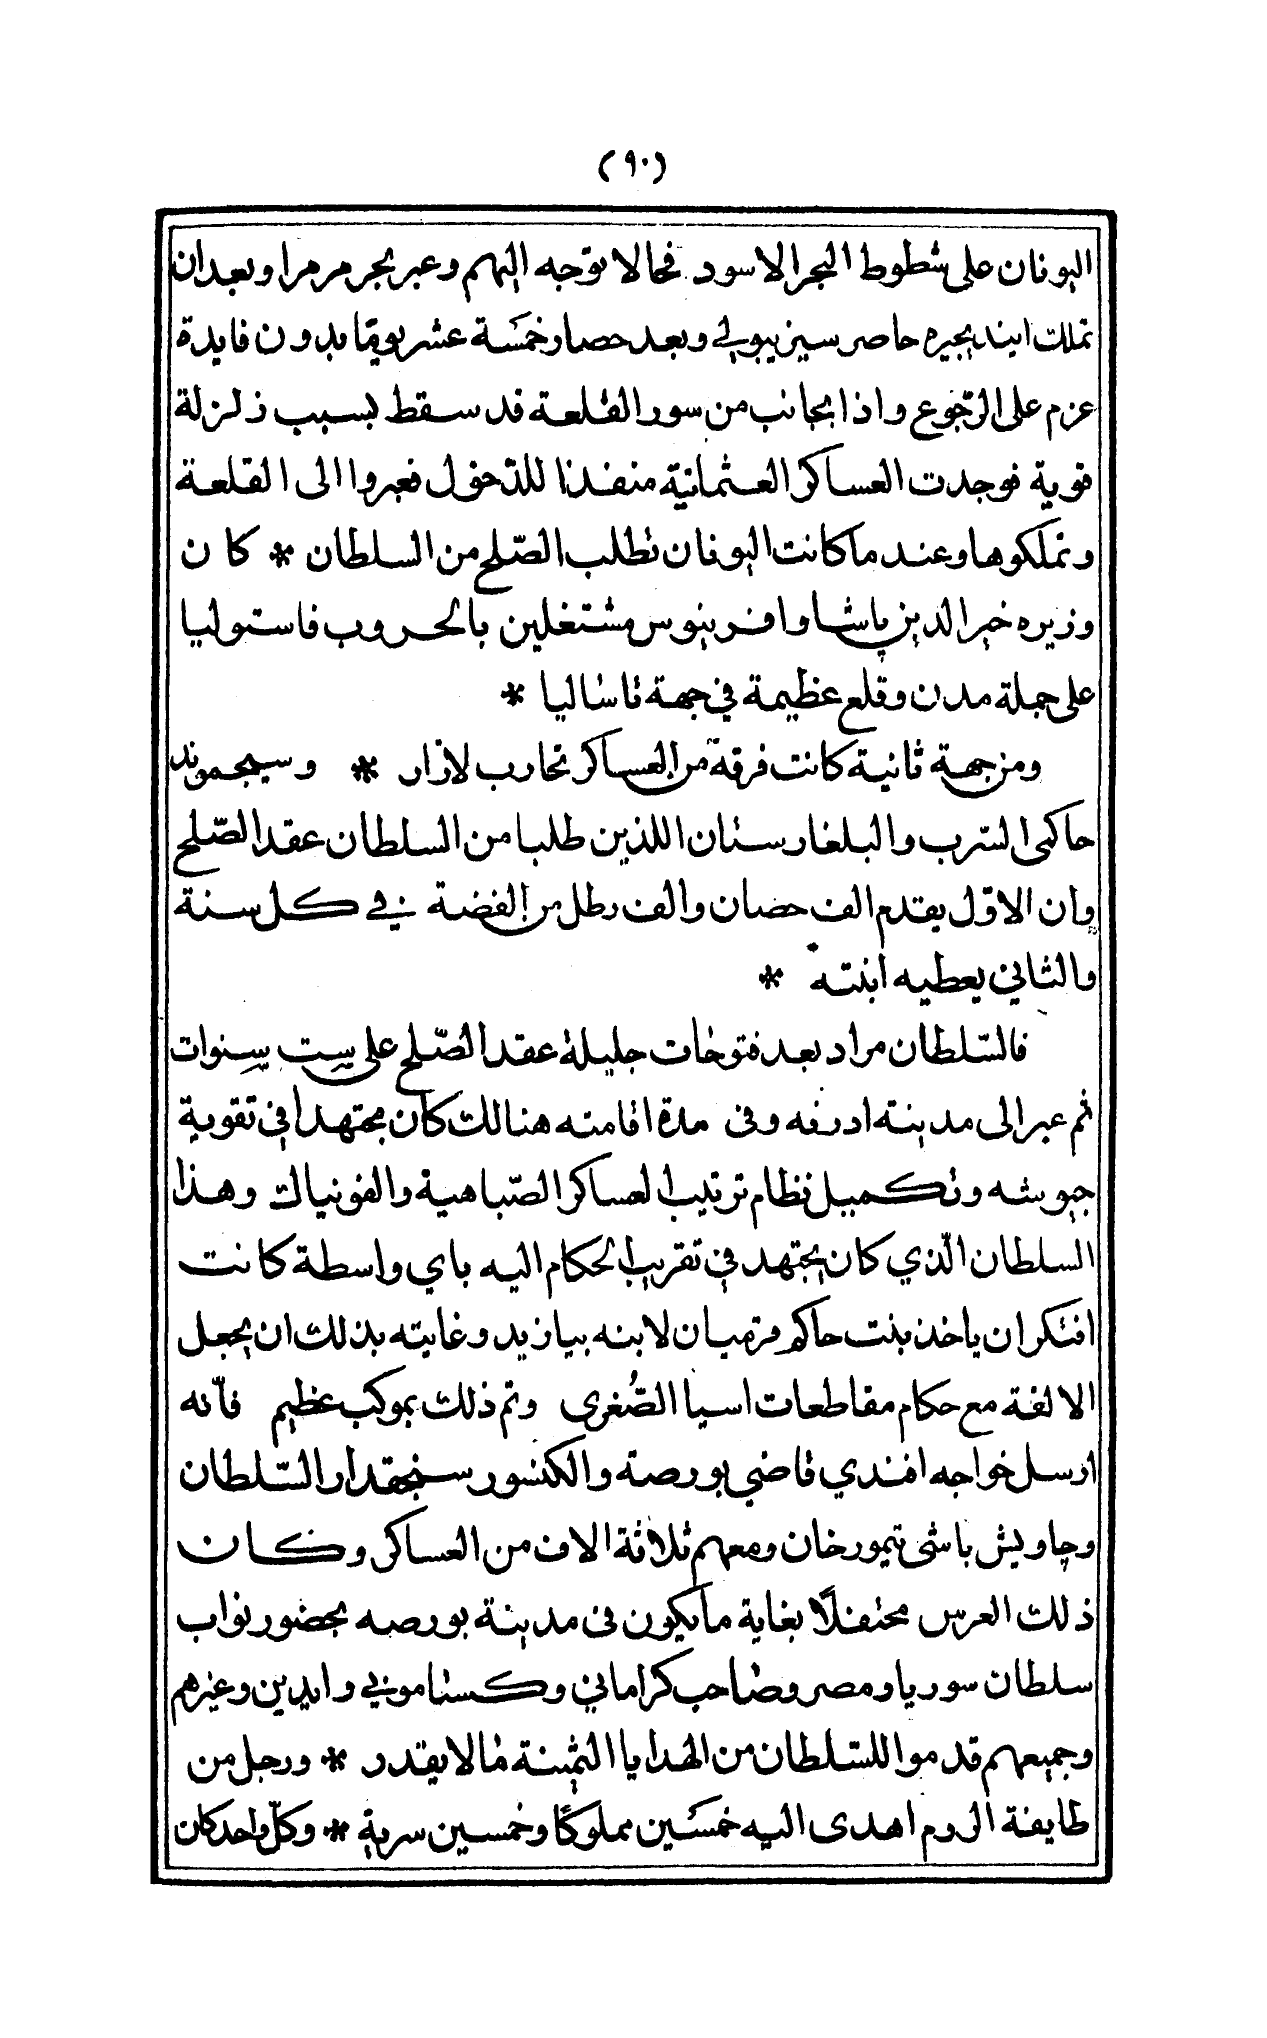 (٩٠)
اليونان على شطوط البحر الاسود فحالا توجه اليهم وعبر بحر مرمرا وبعد ان
تملك ايند يجيره حاصر سيزيبولي وبعد حصار خمسة عشر يوما بدون فايدة
عزم على الرجوع واذا بجانب من سور القلعة قد سقط بسبب زلزلة
قوية فوجدت العساكر العثمانية منفذا للدخول فعبروا الى القلعة
وتملكوها وعند ما كانت اليونان تطلب الصلح من السلطان * كان
وزيره خير الدين پاشا وافرينوس مشتغلين بالحروب فاستوليا
على جملة مدن وقلع عظيمة في جهة تاساليا *
ومن جهة ثانية كانت فرقة من العساكر تحارب لازار * وسيجموند
حاكمي السرب والبلغارستان اللذين طلبا من السلطان عقد الصلح
وان الاول يقدم الف حصان والف رطل من الفضة في كل سنة
والثاني يعطيه ابنته *
فالسلطان مراد بعد فتوحات جليلة عقد الصلح على ست سنوات
ثم عبر الى مدينة ادرنه وفى مدة اقامته هنالك كان مجتهدا في تقوية
جيوشه وتكميل نظام ترتيب العساكر الصباهية والفونياك وهذا
السلطان الذي كان يجتهد في تقريب الحكام اليه باي واسطة كانت
افتكر ان ياخذ بنت حاكم قرميان لابنه بيازيد وغايته بذلك ان يجعل
الالفة مع حكام مقاطعات اسيا الصُغرى وتم ذلك بموكب عظيم فانّه
ارسل خواجه افندي قاضي بورصة والكنسور سنجقدار السّلطان
وچاويش باشى تيمورخان ومعهم ثلاثة الاف من العساكر وكان
ذلك العرس محتفلًا بغاية ما يكون فى مدينة بورصه بحضور نواب
سلطان سوريا ومصر وصاحب كراماني وكستاموني وايدين وغيرهم
وجميعهم قدموا للسّلطان من الهدايا الثمينة ما لا يقدر * ورجل من
طايفة الروم اهدى اليه خمسين مملوكًا وخمسين سرية * وكلّ واحد كان